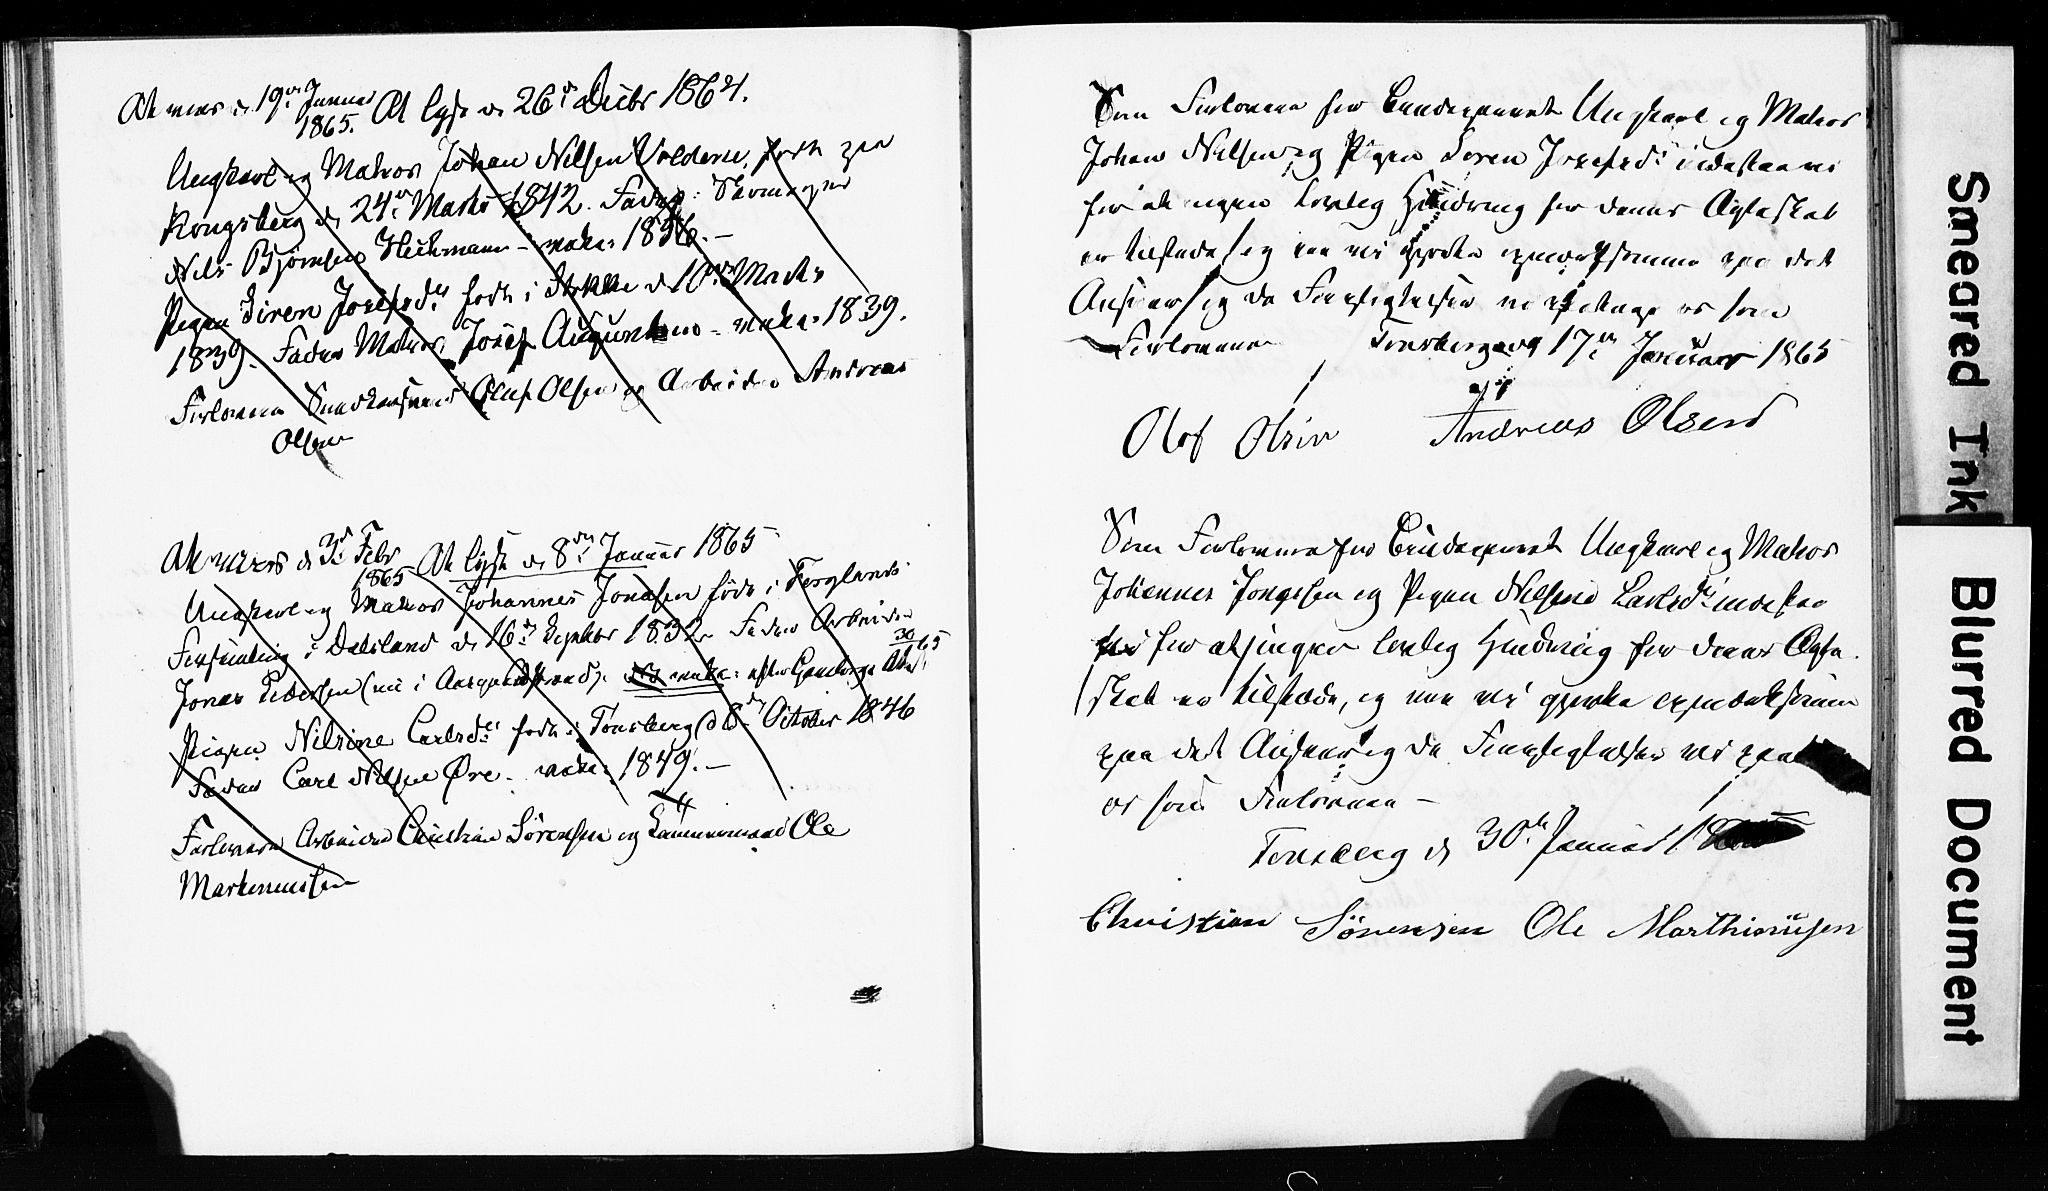 At vies d. 19de Januar
1865. At lyse d 26de Decbr 1864.
Ungkarl og Matros Johan Nilsen Volderne, født paa
Kongsberg d. 24de Marts 1842. Fader: Skomager
Nils Bjørnsen Heckmann - 1856. -
Pigen Siren Josefsdt født i Stokke d 10de Marts
1839. Fader Matros Josef - 1839.
Forlovere Olaf Olsen og Arbeider Andreas
Olsen
At vies d. 3de Febr
1865 At lyse d 8de Januar 1865
Ungkarl og Matros Johannes Jonassen født i
i Dalsland d. 16de Septbr 1832 Fader Arbeider
Jonas Pedersen (nu i Aasgaardstrand).
Pigen Nilsine Carlsdt født i Tønsberg d 6de October 1846
Fader Carl Nilsen Øre - 1849. -
Forlovere Arbeider Christian Sørensen og Ole
Marthinussen
Som Forlovere for Brudeparret Ungkarl og Matros
Johan Nilsen og Pigen Seren Josefsdt indestaa vi
for at ingen lovlig Hindring for deres Ægteskab
er tilstede, og ere vi gjorte opmærksomme paa det
Ansvar og de Forpligtelser vi paatage os som
Forlovere Tønsberg og 17de Januar 1865
Olof Olsin Andreas Olsend
Som Forlovere for Brudeparret Ungkarl og Matros
Johannes Jonassen og Pigen Nilsine Carlsdt indestaa
vi for at ingen lovlig Hindring for deres Ægte
skab er tilstede, og ere vi gjorte opmærksomme
paa det Ansvar og de Forpligtelser vi
os som Forlovere -
Tønsberg d. 30te Januar
Christian Sørensen Ole Marthinusen
Smeared Ink
Blurred Document